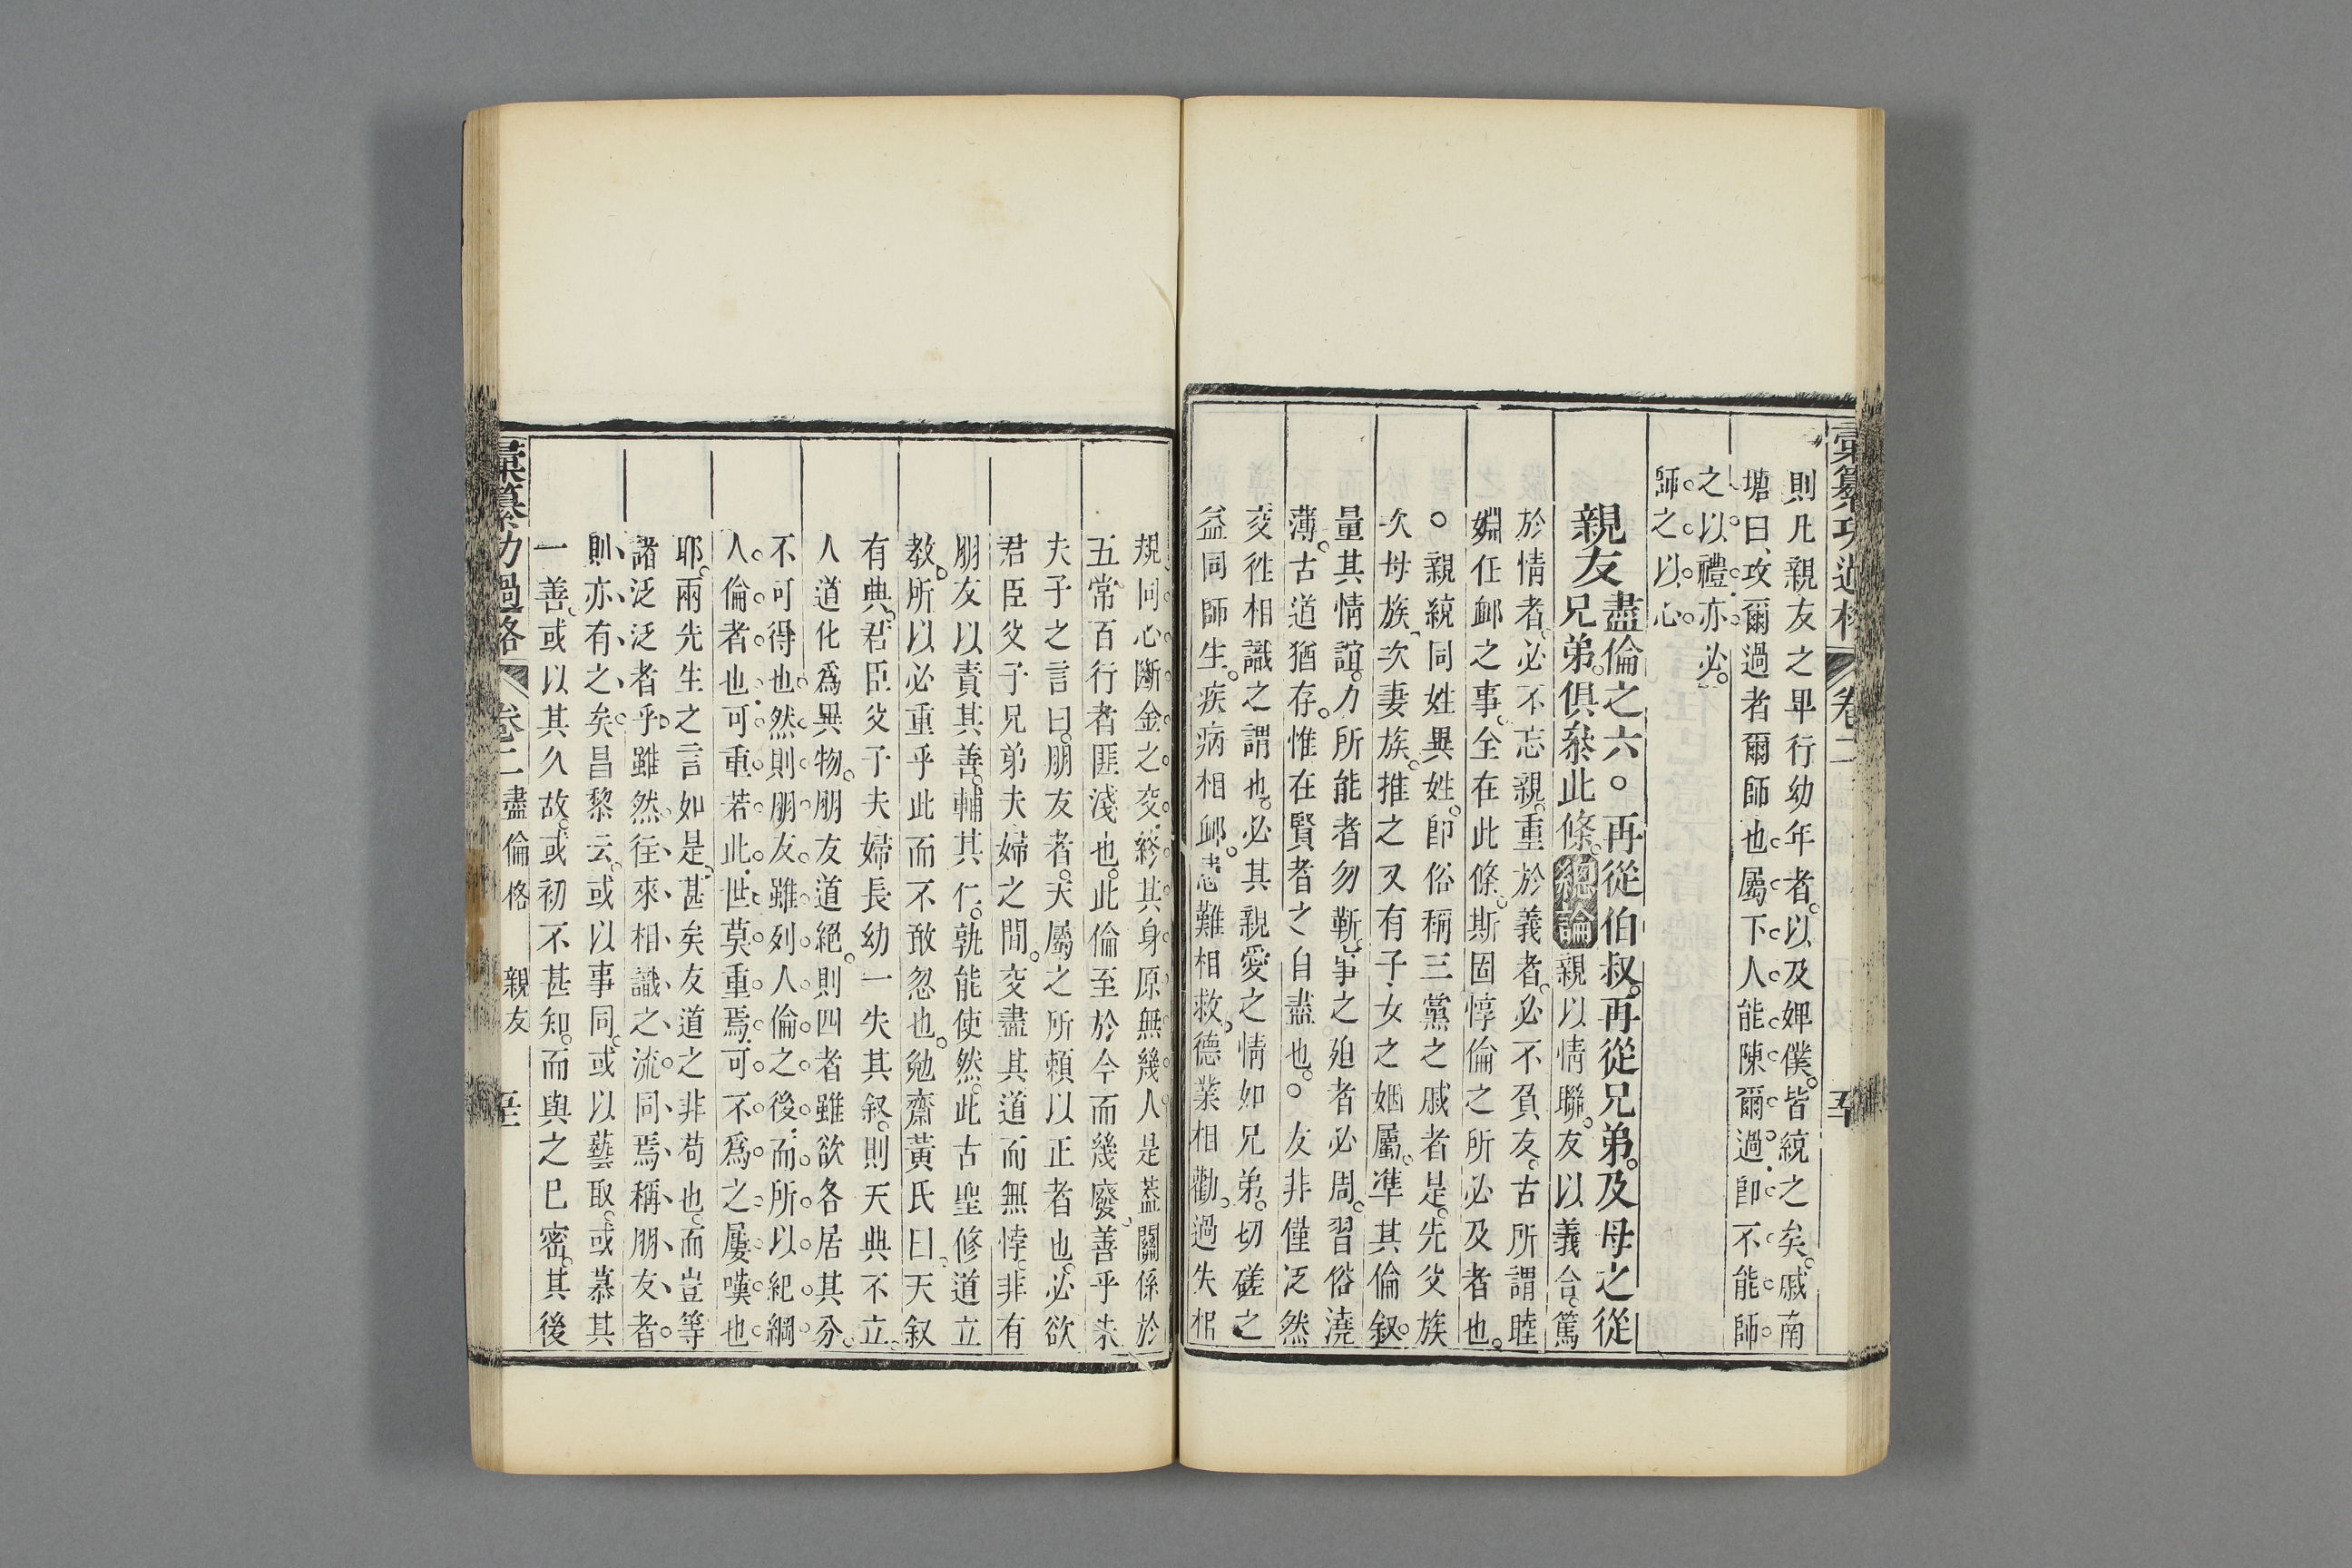 彙纂功過格 卷二 五十
則凡親友之卑行幼年者。以及婢僕。皆統之矣。戚南
塘曰、攻爾過者爾師也。屬下人能陳爾過。卽不能師
之以禮。亦必。
師之以心。
親友 盡倫之六。○再從伯叔。再從兄弟。及母之從
兄弟。俱叅此條。總論親以情聯。友以義合。篤
於情者。必不忘親。重於義者。必不負友。古所謂睦
婣任卹之事。全在此條。斯固惇倫之所必及者也。
○親統同姓異姓。卽俗稱三黨之戚者是。先父族
次母族、次妻族。推之又有子女之姻屬。準其倫叙。
量其情誼。力所能者勿靳。事之廹者必周。習俗澆
薄。古道猶存。惟在賢者之自盡也。○友非僅泛然
交徃相識之謂也。必其親愛之情如兄弟。切磋之
益同師生。疾病相卹。患難相救。德業相勸。過失相
規。同心斷金之交。終其身原無幾人。是葢關係於
五常百行者匪淺也。此倫至於今而幾廢。善乎朱
夫子之言曰。朋友者。天屬之所賴以正者也。必欲
君臣父子兄弟夫婦之間。交盡其道而無悖。非有
朋友以責其善。輔其仁。孰能使然。此古聖修道立
教。所以必重乎此而不敢忽也。勉齋黃氏曰、天叙
有典。君臣父子夫婦長幼一失其叙。則天典不立。
人道化爲異物。朋友道絕。則四者雖欲各居其分。
不可得也。然則朋友雖列人倫之後。而所以紀綱
人倫者也。可重若此。世莫重焉。可不爲之屢嘆也
耶。兩先生之言如是。甚矣友道之非苟也。而豈等
諸泛泛者乎。雖然往來相識之流。同焉稱朋友者。
則亦有之矣。昌黎云。或以事同。或以藝取。或慕其
一善。或以其久故。或初不甚知。而與之已密。其後
彙纂功過格 卷二 盡倫格 親友 五十一